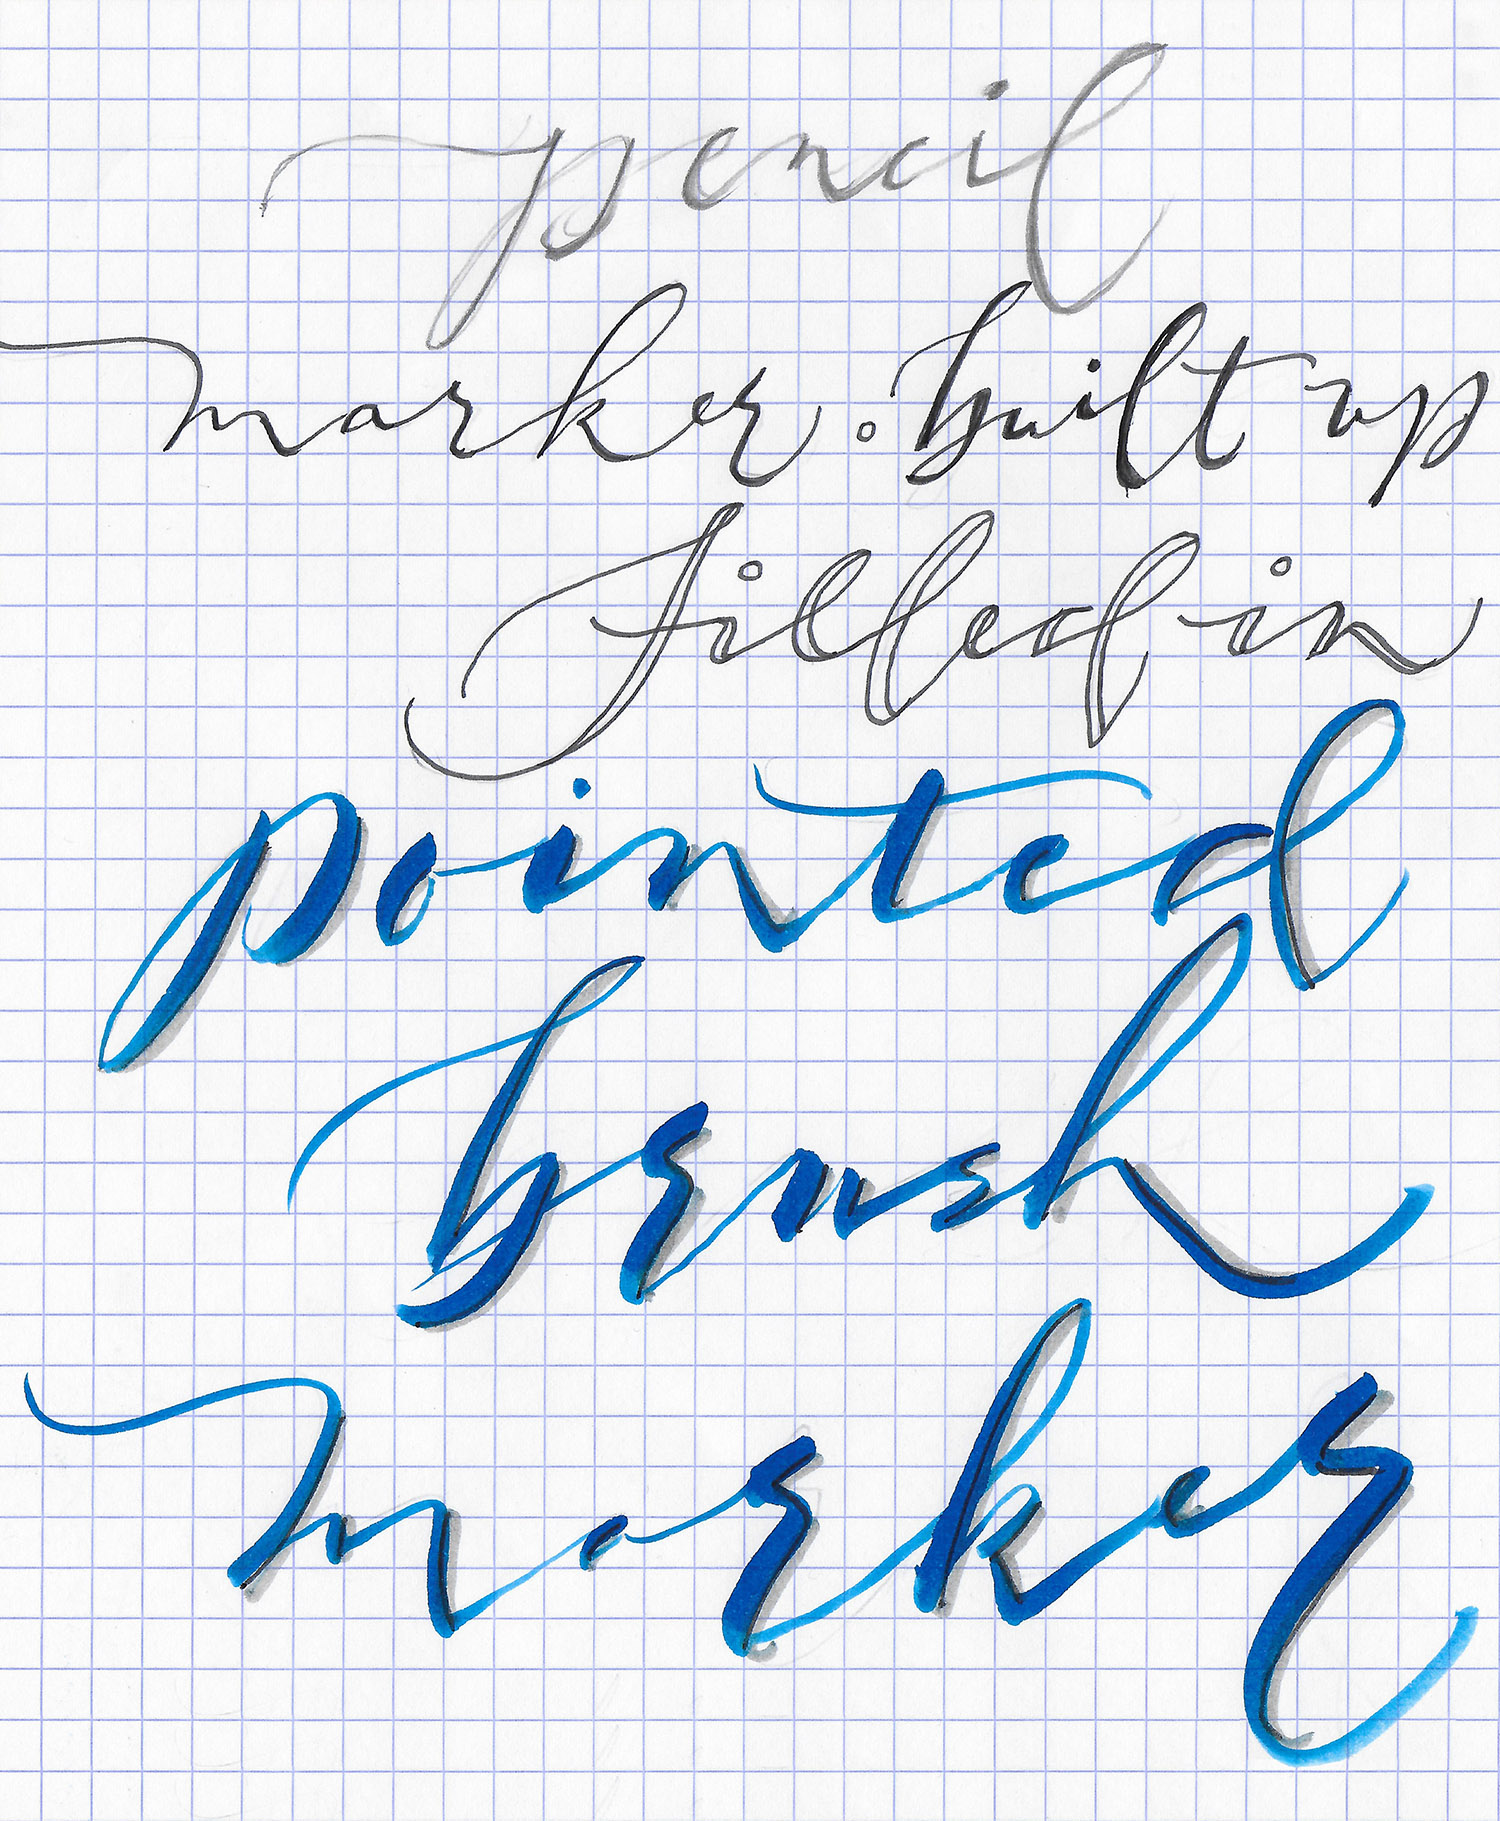 pencil
marker: built up
filled in
pointed
brush
marker